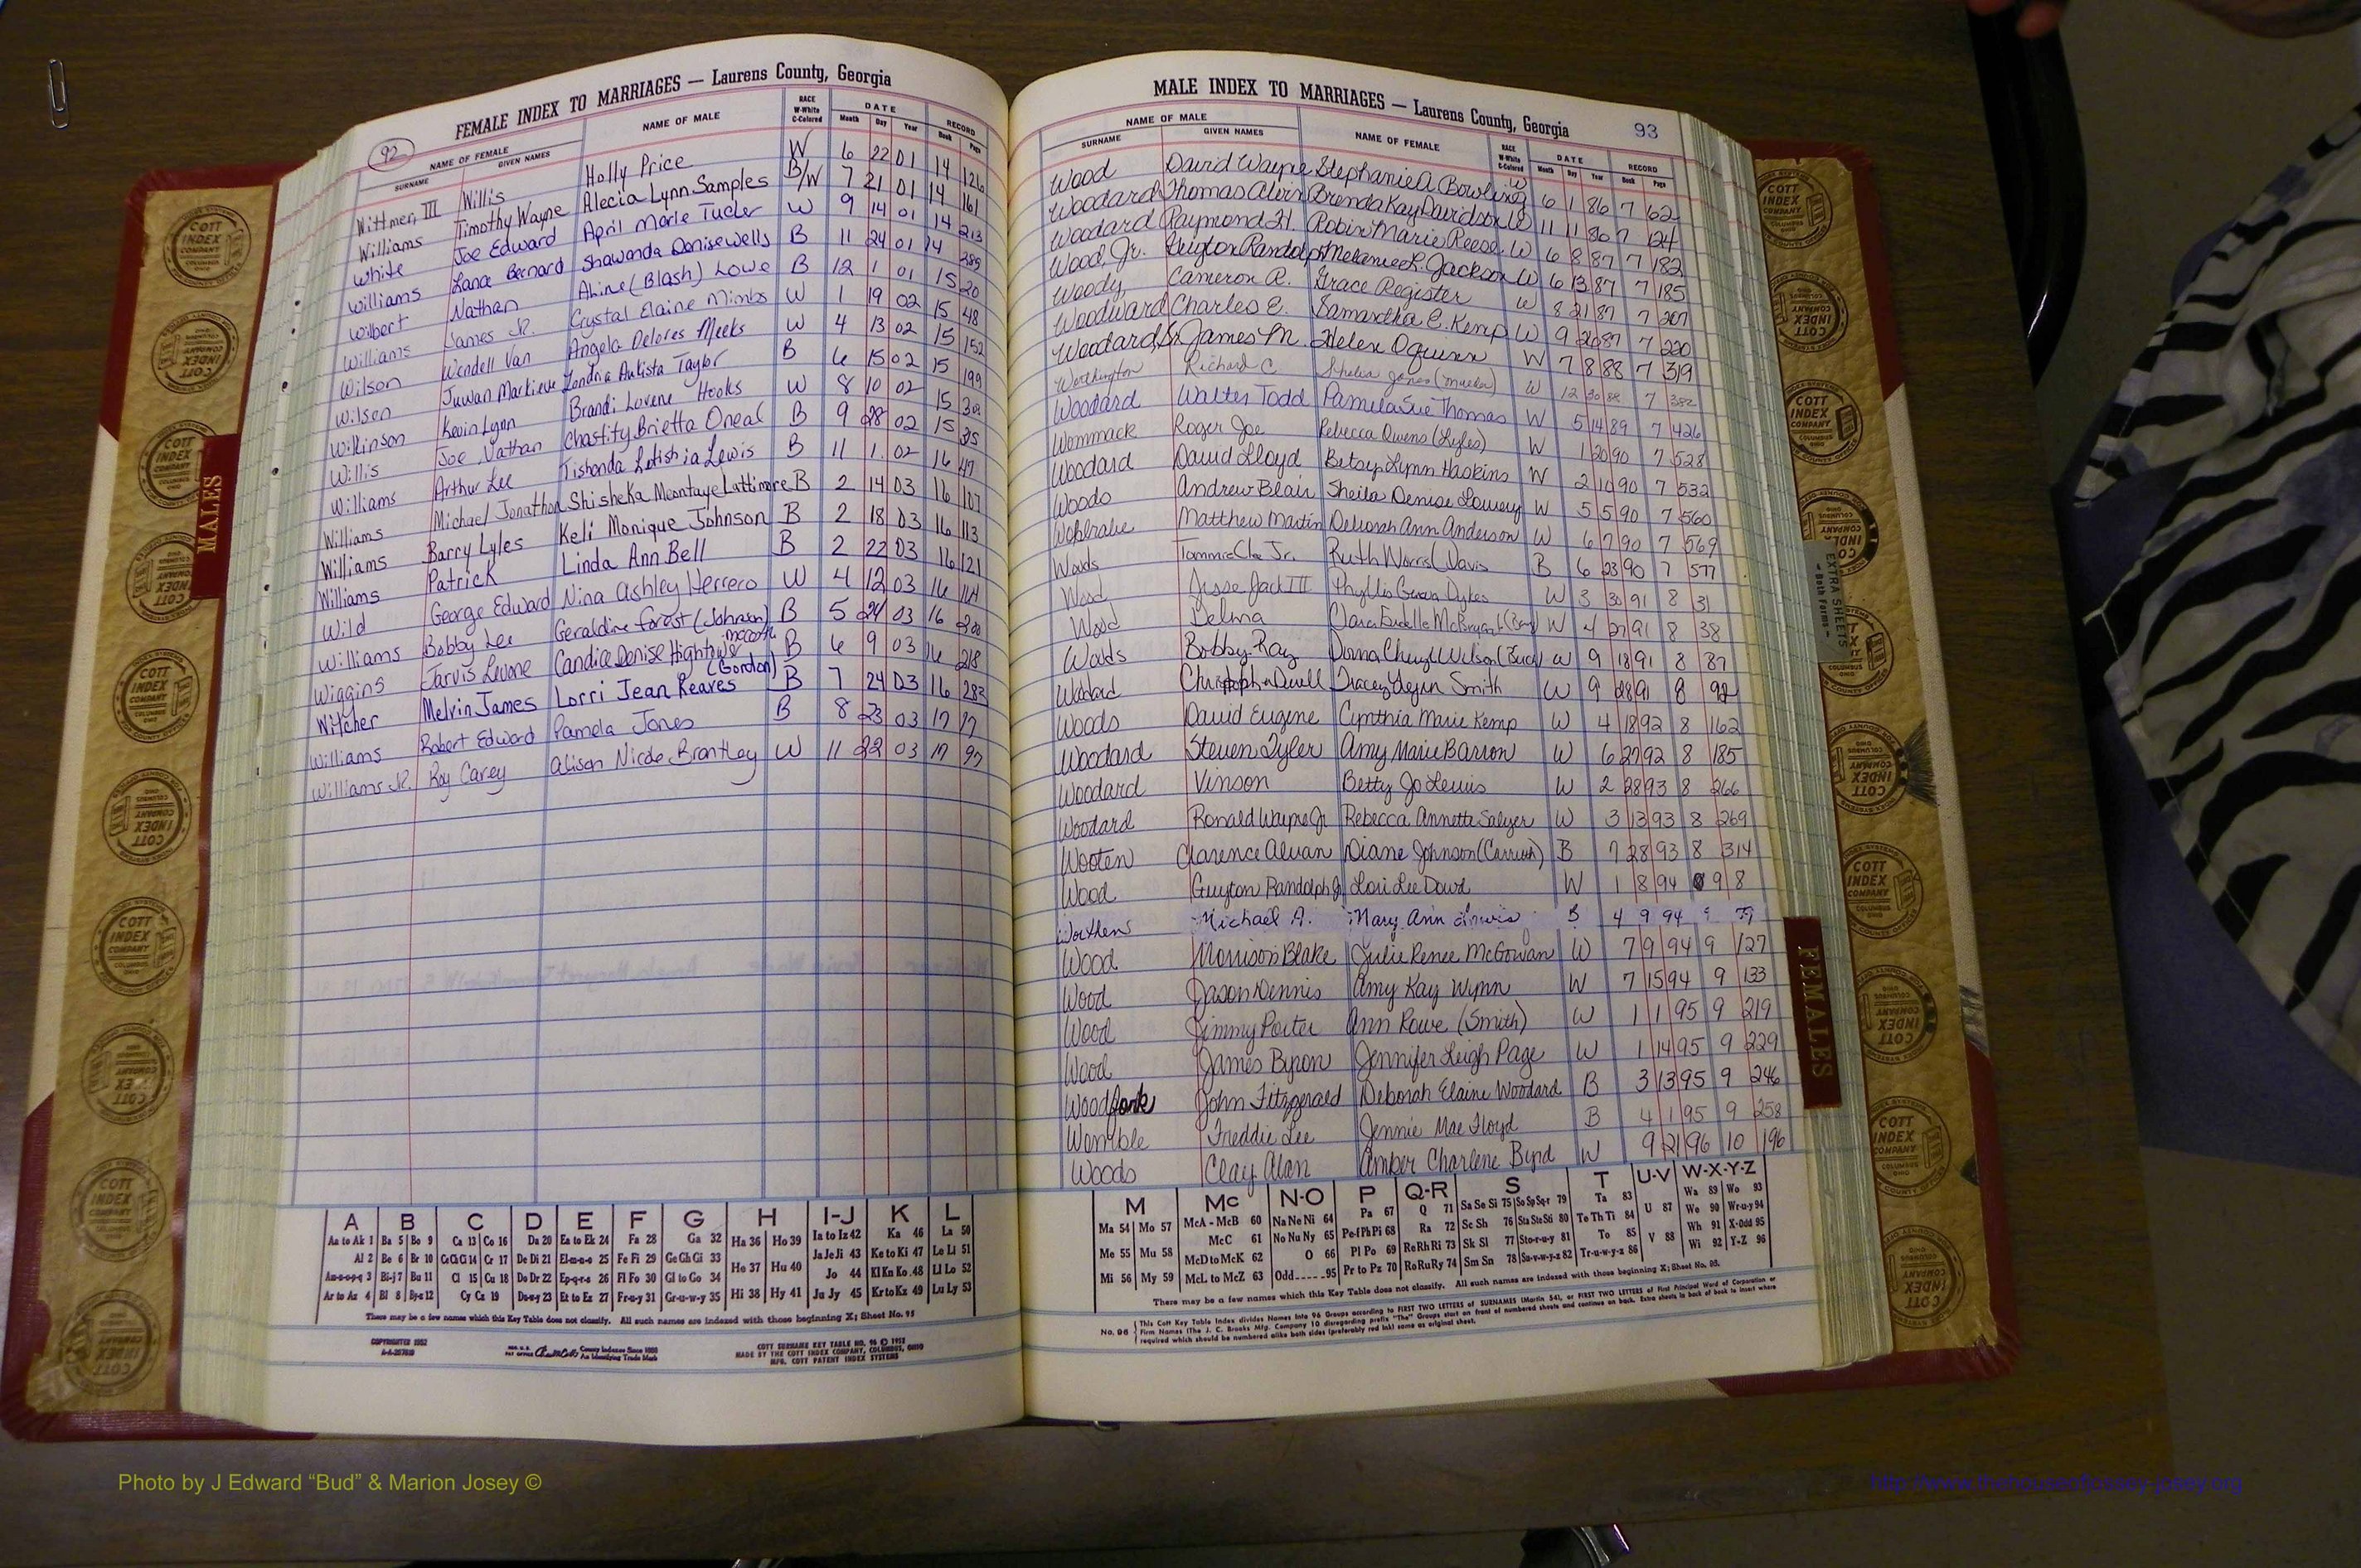 FEMALE INDEX TO MARRIAGES — Laurens County, Georgia
92
NAME OF FEMALE NAME OF MALE RACE DATE RECORD
SURNAME GIVEN NAMES W-White C-Colored Month Day Year Book Page
Wittmen, III Willis Holly Price W 6 22 01 14 126
Williams Timothy Wayne Alecia Lynn Samples B/W 7 21 01 14 161
White Joe Edward April Marie Tucker W 9 14 01 14 213
Williams Lance Bernard Shawanda Denise Wells B 11 24 01 14 289
Wilbert Nathan (Blash) Lowe B 12 1 01 15 20
Williams James Jr. Crystal Elaine Mimbs W 1 19 02 15 48
Wilson Wendell Van Angela Delores Meeks W 4 13 02 15 152
Wilson Juwan Markieve Taylor B 6 15 02 15 199
Wilkinson Kevin Lynn Brandi Lovene Hooks W 8 10 02 15
Willis Joe Nathan Chastity Brietta Oneal B 9 28 02 15
Williams Arthur Lee Tishonda Letishia Lewis B 11 1 02 16 47
Williams Michael Jonathan Shisheka Montaye Lattimore B 2 14 03 16 107
Williams Barry Lyles Keli Monique Johnson B 2 18 03 16 113
Williams Patrick Linda Ann Bell B 2 22 03 16 121
Wild George Edward Nina Ashley Herrero W 4 12 03 16
Williams Bobby Lee Geraldine Forest (Johnson) B 5 24 03 16
Wiggins Jarvis Levone Candice Denise Hightower B 6 9 03 16 218
Witcher Melvin James Lorri Jean Reaves (Gordon) B 7 24 03 16 283
Williams Robert Edward Pamela Jones B 8 23 03 17
Williams Jr. Roy Carey Alison Nicole Brantley W 11 22 03 17 97
MALES
A B C D E F G H I-J K L
Aa to Ak 1 Ba 5 Bo 9 Ca 13 Co 16 Da 20 Ea to Ek 24 Fa 28 Ga 32 Ha 36 Ho 39 Ia to Iz 42 Ka 46 La 50
Al 2 Be 6 Br 10 Ce Ch Ci 14 Cr 17 De Di 21 El-m-n-o 25 Fe Fi 29 Ge Gh Gi 33 He 37 Hu 40 Ja Je Ji 43 Ke to Ki 47 Le Li 51
Am-n-o-p-q 3 Bi-j 7 Bu 11 Cl 15 Cu 18 Do Dr 22 Ep-q-r-s 26 Fl Fo 30 Gl to Go 34 Jo 44 Kl Kn Ko 48 Ll Lo 52
Ar to Az 4 Bl 8 By-z 12 Cy Cz 19 Du-w-y 23 Et to Ez 27 Fr-u-y 31 Gr-u-w-y 35 Hi 38 Hy 41 Ju Jy 45 Kr to Kz 49 Lu Ly 53
There may be a few names which this Key Table does not classify. All such names are indexed with those beginning X; Sheet No. 95
COPYRIGHTED 1952
County Indexes Since 1888
An Identifying Trade Mark
COTT SURNAME KEY TABLE NO. 96 © 1952
MADE BY THE COTT INDEX COMPANY, COLUMBUS, OHIO
MFG. COTT PATENT INDEX SYSTEMS
MALE INDEX TO MARRIAGES — Laurens County, Georgia
93
NAME OF MALE NAME OF FEMALE RACE DATE RECORD
SURNAME GIVEN NAMES W-White C-Colored Month Day Year Book Page
Wood David Wayne Stephanie A Bowling W 6 1 86 7 62
Woodard Thomas Alvin Brenda Kay Davidson W 11 1 86 7 124
Woodard Raymond H. Robin Marie Reese W 6 8 87 7 182
Wood, Jr. Guyton Randolph Melanie L. Jackson W 6 13 87 7 185
Woody Cameron R. Grace Register W 8 21 87 7 207
Woodward Charles E. Samantha E. Kemp W 9 26 87 7 220
Woodard, Sr. James M. Helen Oquinn W 7 8 88 7 319
Worthington Richard C Shelia Jones W 12 30 88 7 382
Woodard Walter Todd Pamela Sue Thomas W 5 14 89 7 426
Wommack Roger Joe Rebecca Owens (Lyles) W 1 20 90 7 528
Woodard David Lloyd Betsy Lynn Haskins W 2 10 90 7 532
Woods Andrew Blair Sheila Denise Lowery W 5 5 90 7 560
Matthew Martin Deborah Ann Anderson W 6 7 90 7 569
Woods Jr. Ruth Davis B 6 23 90 7 577
Wood Jesse Jack III Phyllis Dykes W 3 30 91 8 31
Wood Delma W 4 27 91 8 38
Woods Bobby Ray Donna Cheryl Wilson W 9 1 91 8 87
Woodard Christopher Smith W 9 28 91 8 92
Woods David Eugene Cynthia Marie Kemp W 4 18 92 8 162
Woodard Steven Tyler Amy Marie Barron W 6 27 92 8 185
Woodard Vinson Betty Jo Lewis W 2 28 93 8 266
Woodard Ronald Wayne Jr Rebecca Annette Salyer W 3 13 93 8 269
Wooten Clarence Alvan Diane Johnson B 7 28 93 8 314
Wood Guyton Randolph Jr Lori Lee Dowd W 1 8 94 9 8
Worthen Michael A. Mary Ann Lewis B 4 9 94 9 79
Wood Morrison Blake Julie Renee McGowan W 7 9 94 9 127
Wood Jason Dennis Amy Kay Wynn W 7 15 94 9 133
Wood Jimmy Porter Ann Rowe (Smith) W 1 1 95 9 219
Wood James Byron Jennifer Leigh Page W 1 14 95 9 229
Woodfork John Fitzgerald Deborah Elaine Woodard B 3 13 95 9 246
Womble Freddie Lee Jennie Mae Floyd B 4 1 95 9 258
Woods Clay Alan Amber Charlene Byrd W 9 21 96 10 196
EXTRA SHEETS
— Both Forms —
FEMALES
M Mc N-O P Q-R S T U-V W-X-Y-Z
Ma 54 Mo 57 McA - McB 60 Na Ne Ni 64 Pa 67 Q 71 Sa Se Si 75 So Sp Sq-r 79 Ta 83 U 87 Wa 89 Wo 93
Me 55 Mu 58 McC 61 No Nu Ny 65 Pe-f Ph Pi 68 Ra 72 Sc Sh 76 Sta Ste Sti 80 Te Th Ti 84 We 90 Wr-u-y 94
McD to McK 62 O 66 Pl Po 69 Re Rh Ri 73 Sk Sl 77 Sto-r-u-y 81 To 85 V 88 Wh 91 X-Odd 95
Mi 56 My 59 McL to McZ 63 Odd-----95 Pr to Pz 70 Ro Ru Ry 74 Sm Sn 78 Su-v-w-y-z 82 Tr-u-w-y-z 86 Wi 92 Y-Z 96
There may be a few names which this Key Table does not classify. All such names are indexed with those beginning X; Sheet No. 95.
No. 96 This Cott Key Table Index divides Names into 96 Groups according to FIRST TWO LETTERS of SURNAMES (Martin 54), or FIRST TWO LETTERS of First Principal Word of Corporation or
Firm Names (The J. C. Brooks Mfg. Company 10 disregarding prefix "The" Groups start on front of numbered sheets and continue on back. Extra sheets in back of book to insert where
required which should be numbered alike both sides (preferably red ink) same as original sheet.
COTT INDEX COMPANY COLUMBUS OHIO
Photo by J Edward “Bud” & Marion Josey ©
http://www.thehouseofjossey-josey.org